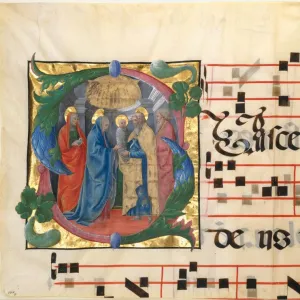 SUsce
de us